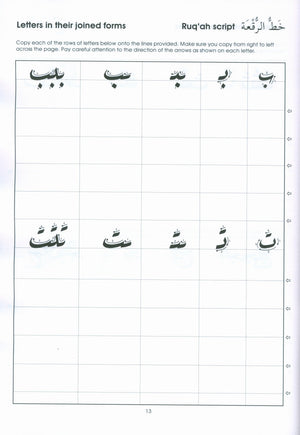 Letters in their joined forms
Ruq'ah script خَطُّ الرُّقْعَة
Copy each of the rows of letters below onto the lines provided. Make sure you copy from right to left
across the page. Pay careful attention to the direction of the arrows as shown on each letter.
ب بـ ـبـ ـب ببب
ت تـ ـتـ ـت تتت
13